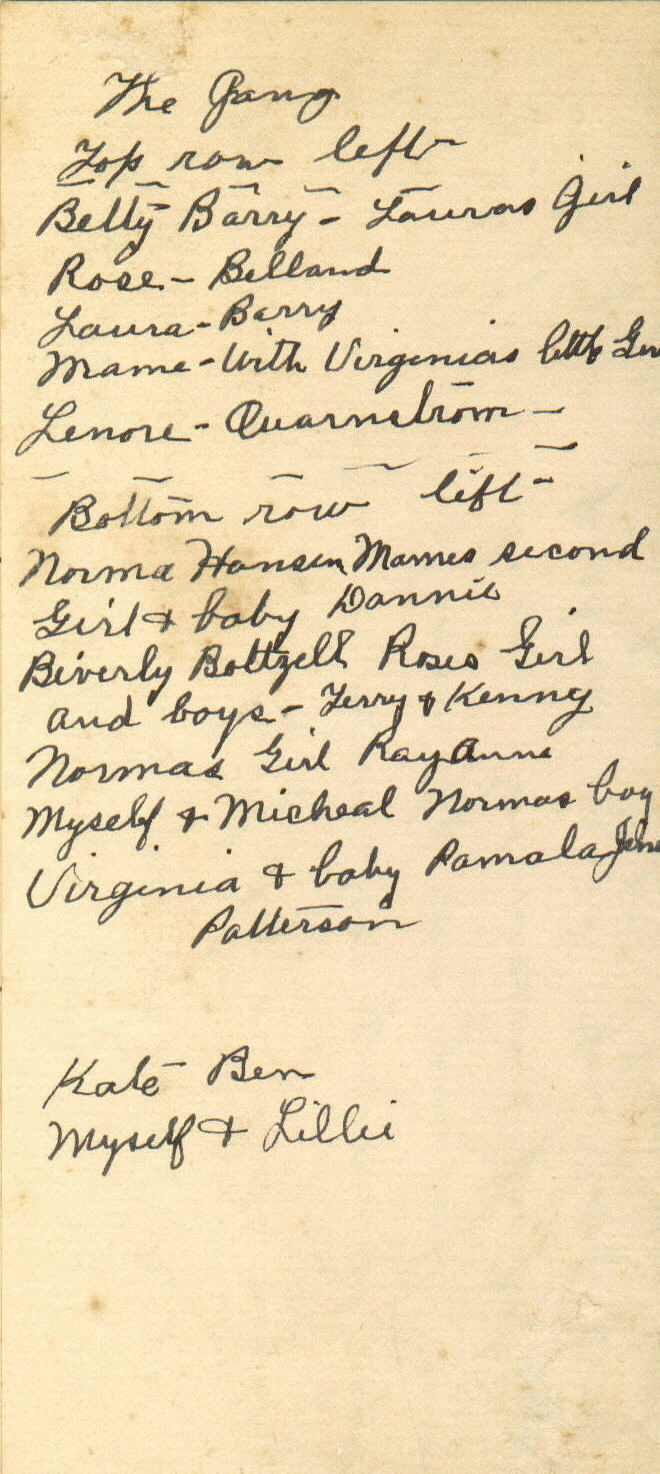 The Gang
Top row left
Betty Barry - Lauras Girl
Rose - Belland
Laura - Barry
Mame - With Virginias little Girl
Lenore - Quarnstrom -
Bottom row left -
Norma Hansen Mames second
Girl & baby Dannie
Beverly Boltzell Roses Girl
and boys - Terry & Kenny
Normas Girl Rayanne
Myself & Micheal Normas boy
Virginia & baby Pamala
Patterson
Kate Ben
Myself & Lillie